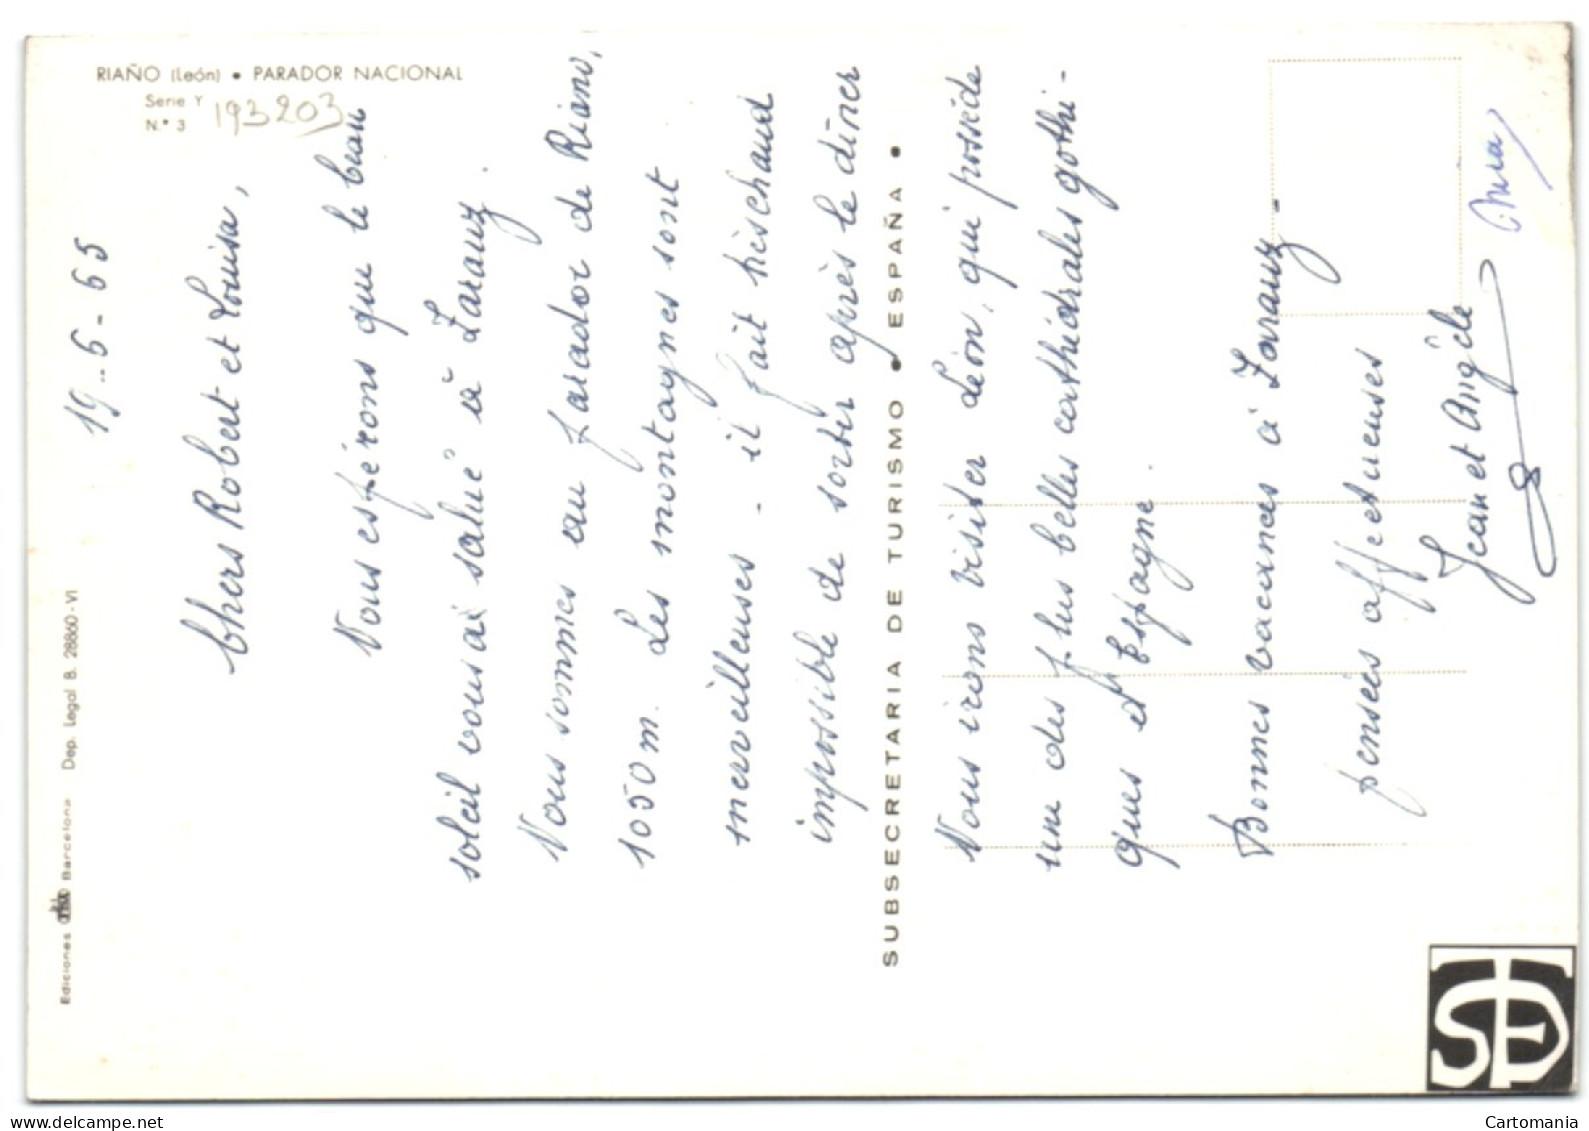 RIAÑO (León) • PARADOR NACIONAL
Serie Y
N.° 3
193203
Ediciones Barcelona Dep. Legal B. 28860-VI
19-6-65
Chers Robert et Louisa,
Nous espérons que le beau
soleil vous ai salué à Zarauz.
Nous sommes au parador de Riano,
1050 m. Les montagnes sont
merveilleuses - il fait très chaud
impossible de sortir après le dîner
SUBSECRETARIA DE TURISMO • ESPAÑA •
Nous irons visiter Léon, qui possède
une des plus belles cathédrales gothi-
ques d'Espagne.
Bonnes vacances à Zarauz -
pensées affectueuses
Jean et Angèle
Cartomania